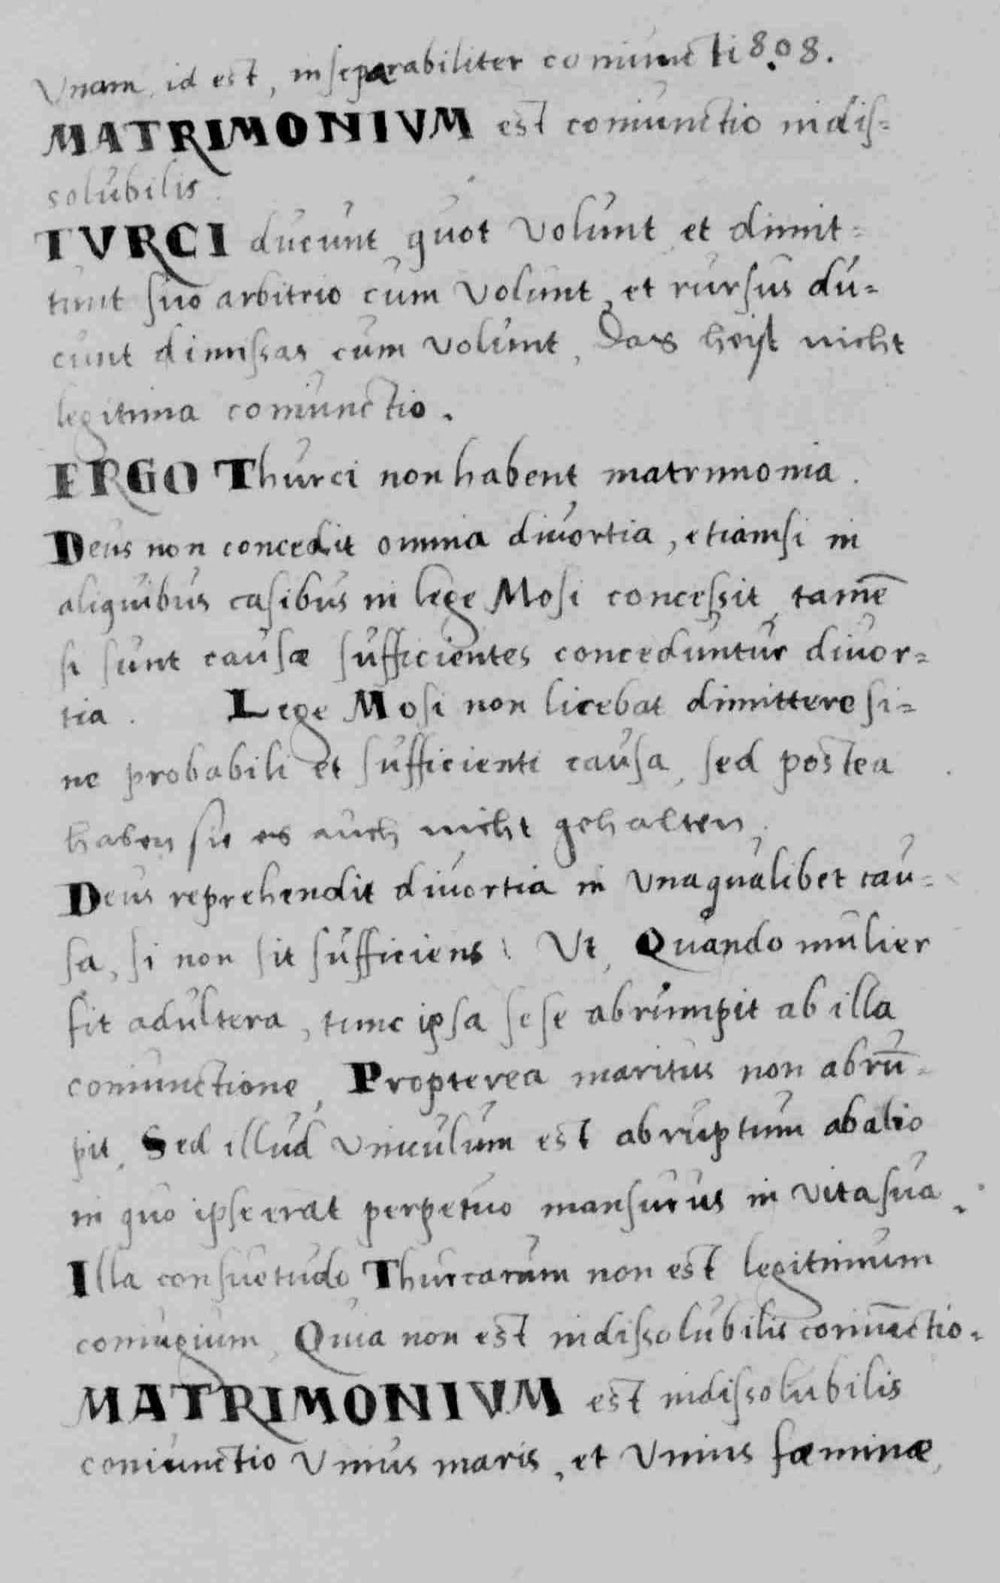 Vnam, id est, inseparabiliter coniuncti 808.
MATRIMONIVM est coniunctio indis=
solubilis.
TVRCI ducunt quot volunt et dimit=
tunt suo arbitrio cum volunt, et rursus du=
cunt dimissas cum volunt, Das heist nicht
legitima coniunctio.
ERGO Thurci non habent matrimonia.
Deus non concedit omnia diuortia, etiamsi in
aliquibus casibus in lege Mosi concessit, tamē
si sunt causæ sufficientes conceduntur diuor=
tia. Lege Mosi non licebat dimittere si=
ne probabili et sufficienti causa, sed postea
haben sie es auch nicht gehalten.
Deus reprehendit diuortia in vnaqualibet cau=
sa, si non sit sufficiens: Vt, Quando mulier
fit adultera, tunc ipsa sese abrumpit ab illa
coniunctione, Propterea maritus non abrū=
pit, Sed illud vinculum est abruptum ab alio
in quo ipse erat perpetuo mansurus in vita sua.
Illa consuetudo Thurcarum non est legitimum
coniugium, Quia non est indissolubilis coniūctio.
MATRIMONIVM est indissolubilis
coniunctio vnius maris, et vnius fæminæ,